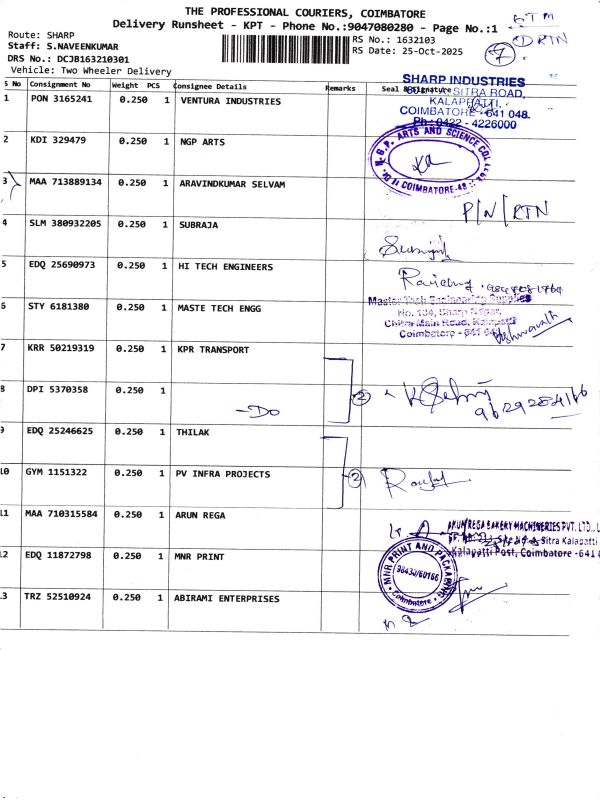 THE PROFESSIONAL COURIERS, COIMBATORE
Delivery Runsheet - KPT - Phone No.:9047080280 - Page No.:1
Route: SHARP
Staff: S.NAVEENKUMAR
RS No.: 1632103
DRS No.: DCJB163210301
RS Date: 25-Oct-2025
Vehicle: Two Wheeler Delivery
7
S No Consignment No Weight PCS Consignee Details Remarks Seal & Signature
SHARP INDUSTRIES
SITRA ROAD,
KALAPATTI,
COIMBATORE - 641 048.
Ph: 0422 - 4226000
1 PON 3165241 0.250 1 VENTURA INDUSTRIES
2 KDI 329479 0.250 1 NGP ARTS
ARTS AND SCIENCE
COIMBATORE-48
3 MAA 713889134 0.250 1 ARAVINDKUMAR SELVAM
P/N/RTN
4 SLM 380932205 0.250 1 SUBRAJA
5 EDQ 25690973 0.250 1 HI TECH ENGINEERS
6 STY 6181380 0.250 1 MASTE TECH ENGG
Master Tech Engineering Supplies
No. 134, Sharp Nagar,
Chitra Main Road, Kalapatti
Coimbatore - 641
7 KRR 50219319 0.250 1 KPR TRANSPORT
8 DPI 5370358 0.250 1
-Do
2
9 EDQ 25246625 0.250 1 THILAK
10 GYM 1151322 0.250 1 PV INFRA PROJECTS
2
11 MAA 710315584 0.250 1 ARUN REGA
ARUN REGA BAKERY MACHINERIES PVT. LTD.,
Sitra Kalapatti
Kalapatti Post, Coimbatore - 641
12 EDQ 11872798 0.250 1 MNR PRINT
MNR PRINT AND PACKAGING
98430/60166
Coimbatore
13 TRZ 52510924 0.250 1 ABIRAMI ENTERPRISES